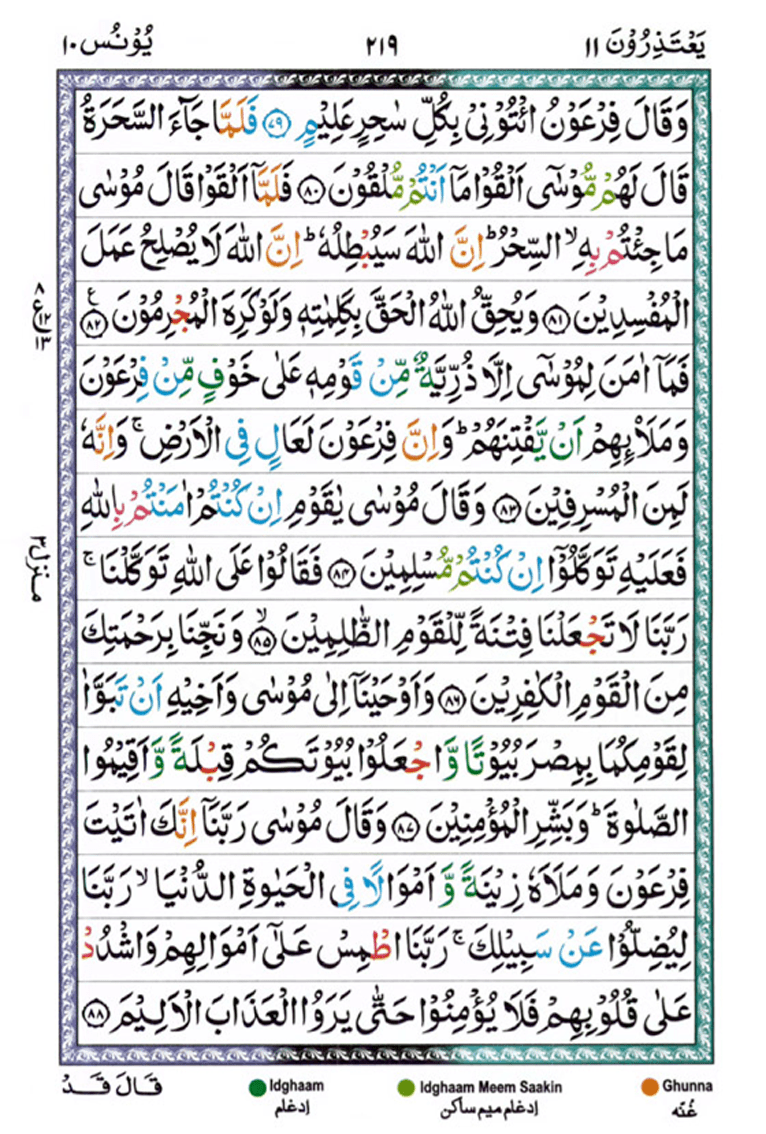 يَعْتَذِرُوْنَ ١١
٢١٩
يُوْنُس ١٠
وَقَالَ فِرْعَوْنُ ائْتُوْنِىْ بِكُلِّ سٰحِرٍ عَلِيْمٍ ﴿٧٩﴾ فَلَمَّا جَآءَ السَّحَرَةُ
قَالَ لَهُمْ مُّوْسٰٓى اَلْقُوْا مَاۤ اَنْتُمْ مُّلْقُوْنَ ﴿٨٠﴾ فَلَمَّاۤ اَلْقَوْا قَالَ مُوْسٰى
مَا جِئْتُمْ بِهِ ۙ السِّحْرُ ؕ اِنَّ اللّٰهَ سَيُبْطِلُهٗ ؕ اِنَّ اللّٰهَ لَا يُصْلِحُ عَمَلَ
الْمُفْسِدِيْنَ ﴿٨١﴾ وَيُحِقُّ اللّٰهُ الْحَقَّ بِكَلِمٰتِهٖ وَلَوْ كَرِهَ الْمُجْرِمُوْنَ ﴿٨٢﴾ ع
فَمَاۤ اٰمَنَ لِمُوْسٰٓى اِلَّا ذُرِّيَّةٌ مِّنْ قَوْمِهٖ عَلٰى خَوْفٍ مِّنْ فِرْعَوْنَ
وَمَلَا۟ئِهِمْ اَنْ يَّفْتِنَهُمْ ؕ وَاِنَّ فِرْعَوْنَ لَعَالٍ فِى الْاَرْضِ ۚ وَاِنَّهٗ
لَمِنَ الْمُسْرِفِيْنَ ﴿٨٣﴾ وَقَالَ مُوْسٰى يٰقَوْمِ اِنْ كُنْتُمْ اٰمَنْتُمْ بِاللّٰهِ
فَعَلَيْهِ تَوَكَّلُوْۤا اِنْ كُنْتُمْ مُّسْلِمِيْنَ ﴿٨٤﴾ فَقَالُوْا عَلَى اللّٰهِ تَوَكَّلْنَا ۚ
رَبَّنَا لَا تَجْعَلْنَا فِتْنَةً لِّلْقَوْمِ الظّٰلِمِيْنَ ۙ﴿٨٥﴾ وَنَجِّنَا بِرَحْمَتِكَ
مِنَ الْقَوْمِ الْكٰفِرِيْنَ ﴿٨٦﴾ وَاَوْحَيْنَاۤ اِلٰى مُوْسٰى وَاَخِيْهِ اَنْ تَبَوَّاٰ
لِقَوْمِكُمَا بِمِصْرَ بُيُوْتًا وَّاجْعَلُوْا بُيُوْتَكُمْ قِبْلَةً وَّاَقِيْمُوا
الصَّلٰوةَ ؕ وَبَشِّرِ الْمُؤْمِنِيْنَ ﴿٨٧﴾ وَقَالَ مُوْسٰى رَبَّنَاۤ اِنَّكَ اٰتَيْتَ
فِرْعَوْنَ وَمَلَاَهٗ زِيْنَةً وَّاَمْوَالًا فِى الْحَيٰوةِ الدُّنْيَا ۙ رَبَّنَا
لِيُضِلُّوْا عَنْ سَبِيْلِكَ ۚ رَبَّنَا اطْمِسْ عَلٰٓى اَمْوَالِهِمْ وَاشْدُدْ
عَلٰى قُلُوْبِهِمْ فَلَا يُؤْمِنُوْا حَتّٰى يَرَوُا الْعَذَابَ الْاَلِيْمَ ﴿٨٨﴾
منزل ٣
قَالَ قَدْ
Idghaam
ادغام
Idghaam Meem Saakin
ادغام ميم ساكن
Ghunna
غُنّه